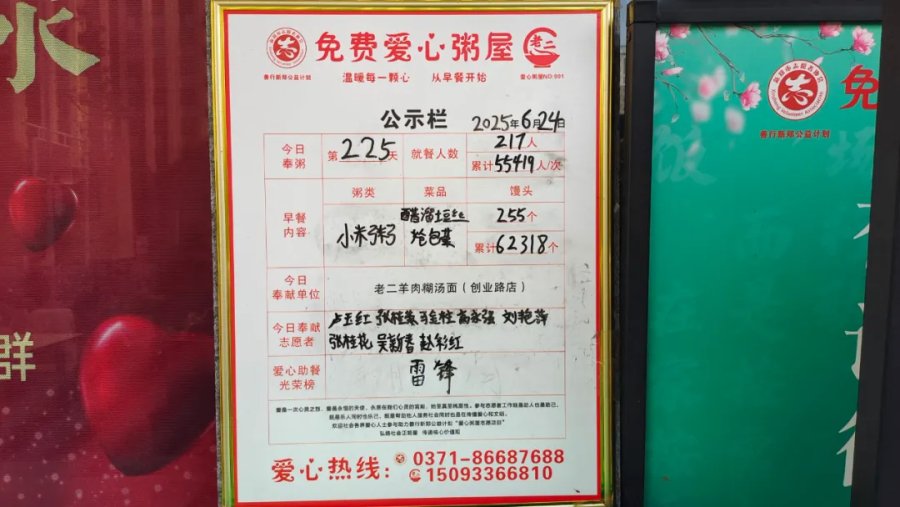 水
群
免费爱心粥屋
老二
善行新郑公益计划
温暖每一颗心 从早餐开始
爱心粥屋NO·001
公示栏 2025年6月24日
今日奉粥 第225天 就餐人数 217人
累计55419人/次
早餐内容 粥类 菜品 馒头
小米粥 醋溜土豆丝 炝包菜 255个
累计62318个
今日奉献单位 老二羊肉糊汤面(创业路店)
今日奉献志愿者 卢玉红 张桂荣 金柱 高永强 刘艳萍
张桂花 吴新春 赵彩红
爱心助餐光荣榜 雷锋
弘扬社会正能量 传递核心价值观
爱心热线: 0371-86687688
15093366810
新郑市志愿者协会
善行新郑公益计划
免